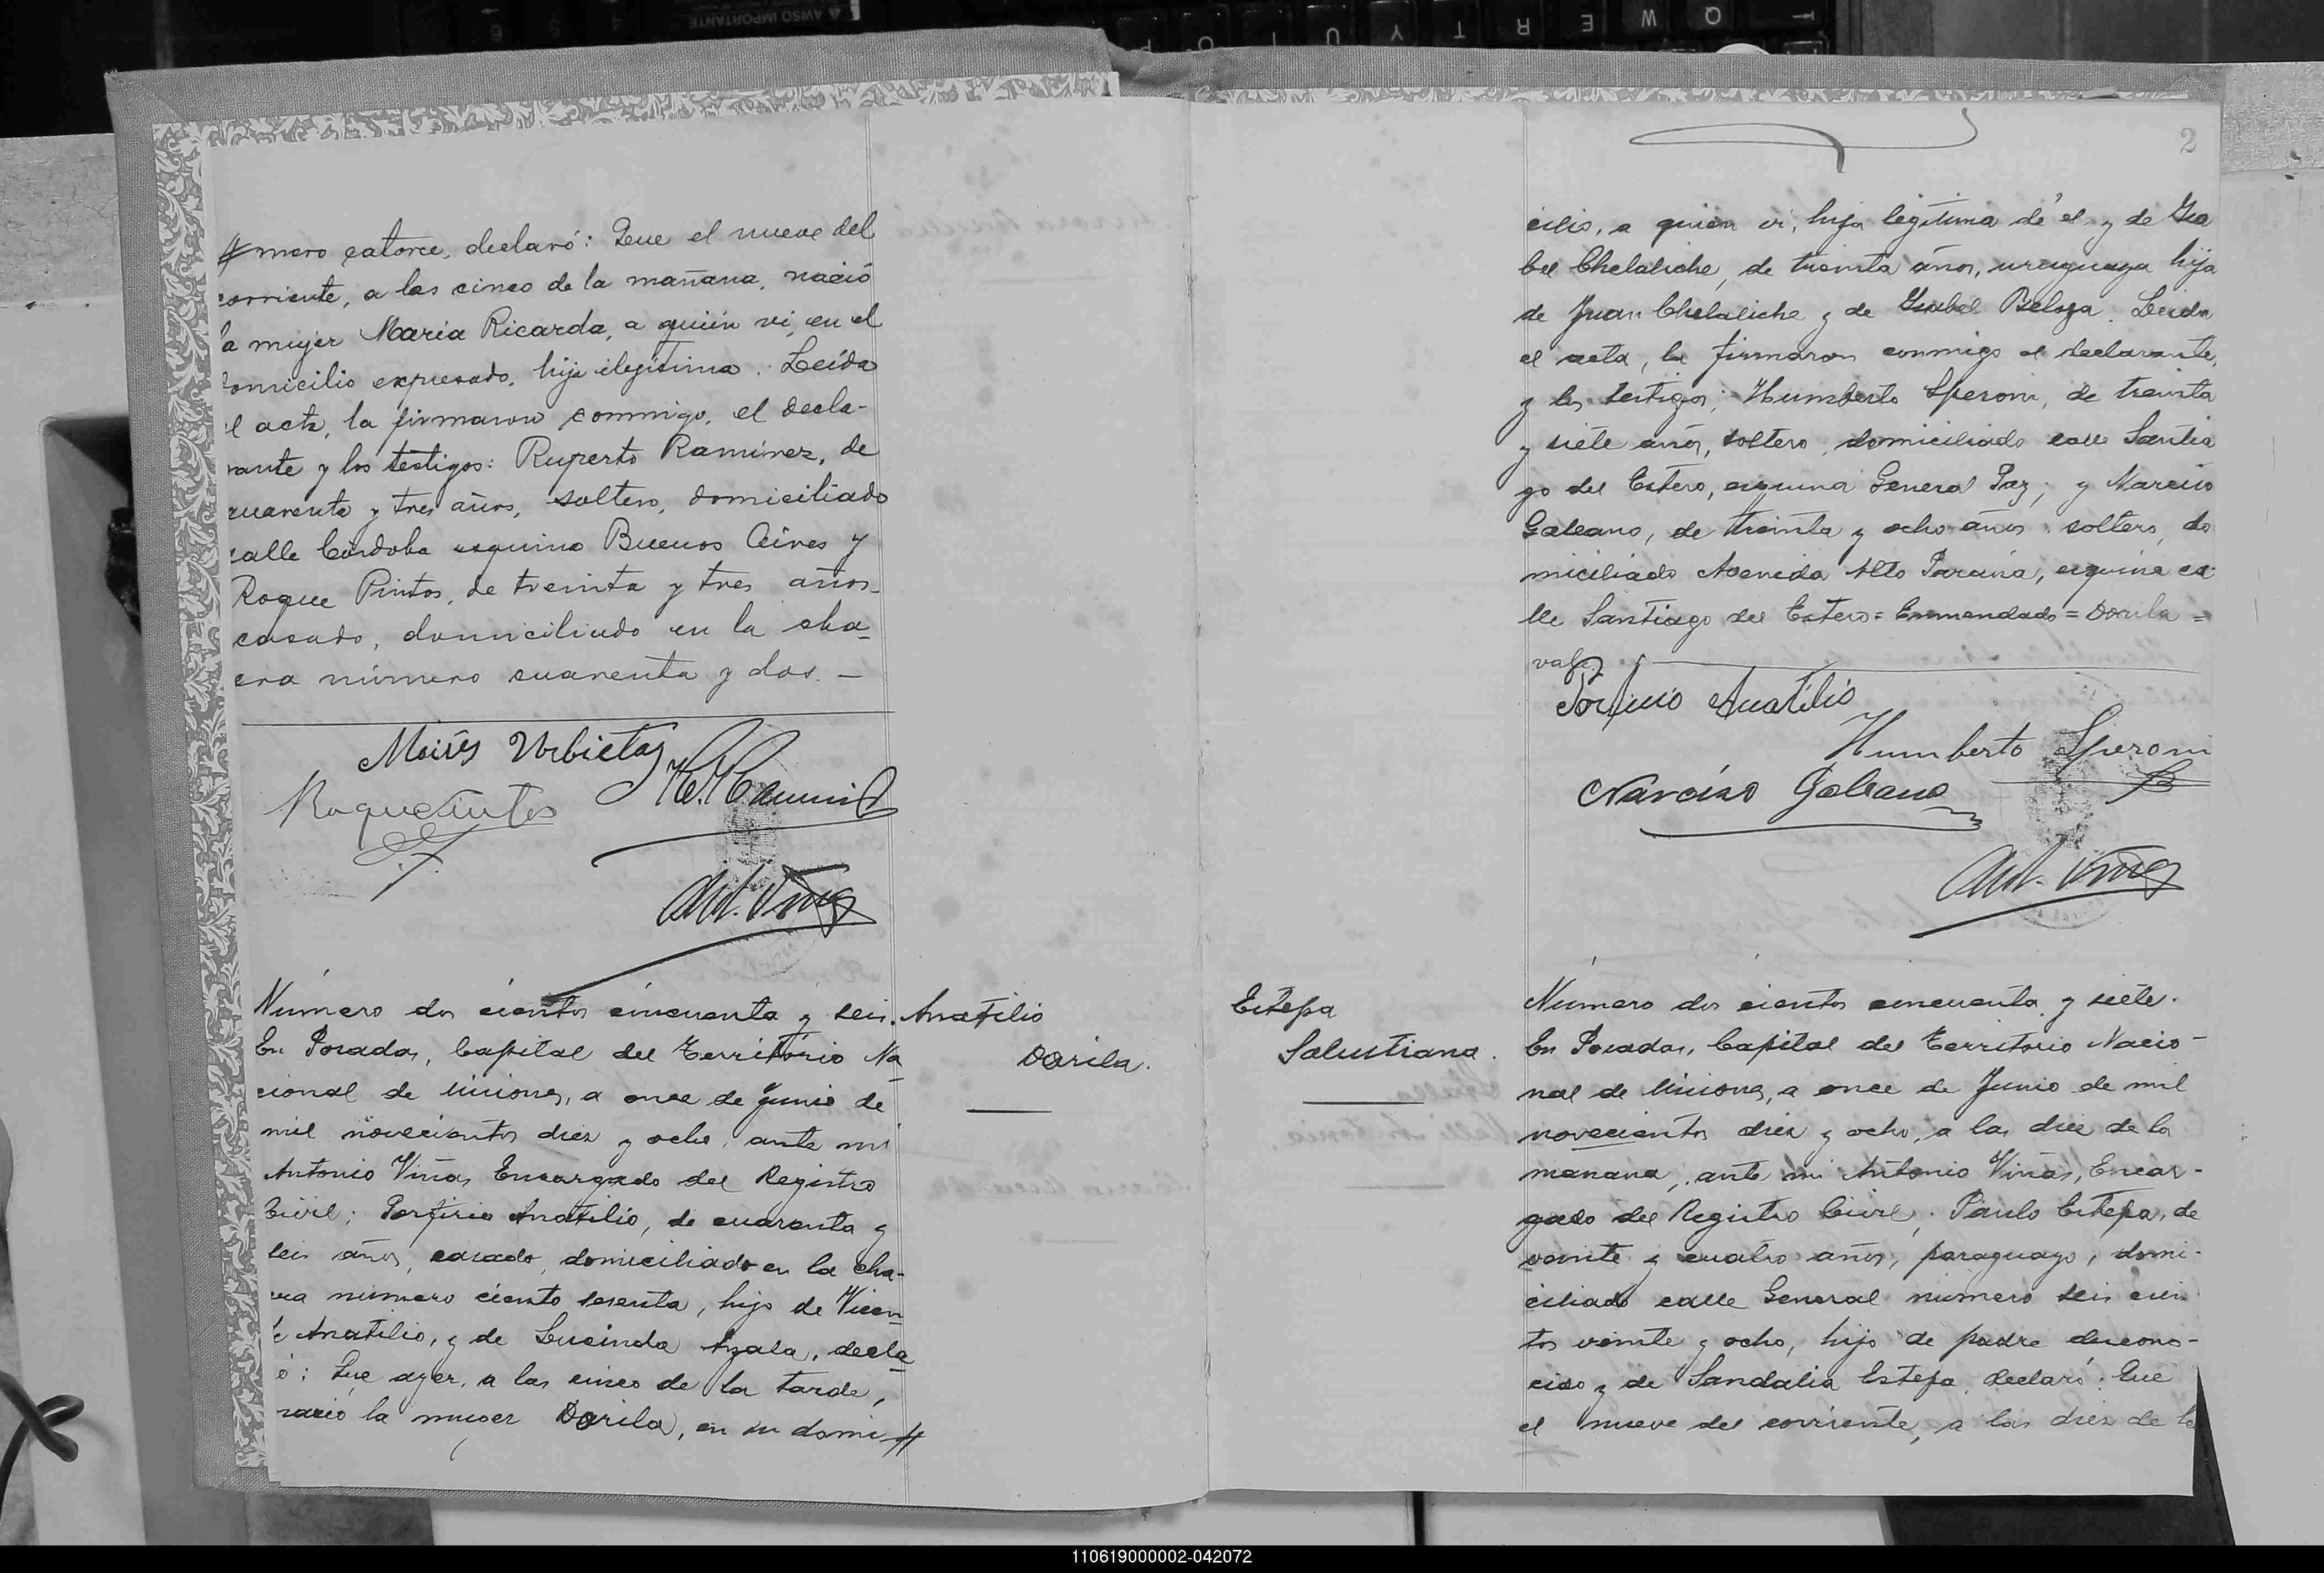 mero catorce, declaró: Que el nueve del
corriente, a las cinco de la mañana, nació
la mujer María Ricarda, a quién vi, en el
domicilio expresado, hija ilegítima. Leída
el acta, la firmaron conmigo, el decla-
rante y los testigos: Ruperto Ramírez, de
cuarenta y tres años, soltero, domiciliado
calle Córdoba esquina Buenos Aires y
Roque Pintos, de treinta y tres años
casado, domiciliado en la cha-
cra número cuarenta y dos. —
Moisés Urbieta
Roque Pintos
Ant. Viñas
Número dos cientos cincuenta y seis.
En Posadas, Capital del Territorio Na
cional de Misiones, a once de Junio de
mil novecientos diez y ocho, ante mi
Antonio Viñas Encargado del Registro
Civil; Porfirio Anatilio, de cuarenta y
seis años, casado, domiciliado en la cha-
cra número ciento sesenta, hijo de Vicen
te Anatilio, y de Lucinda Ayala, decla
ró: Que ayer, a las cinco de la tarde,
nació la mujer Dorila, en su domi
Anatilio
Dorila.
2
cilio, a quién vi, hija legítima de él y de Isa
bel Chelaliche, de treinta años, uruguaya hija
de Juan Chelaliche y de Isabel Beloza. Leida
el acta, la firmaron conmigo el declarante,
y los testigos; Humberto Speroni, de treinta
y siete años, soltero, domiciliado calle Santia
go del Estero, esquina General Paz; y Narciso
Galeano, de treinta y ocho años soltero, do
miciliado Avenida Alto Paraná, esquina ca
lle Santiago del Estero = Enmendado = Dorila =
vale
Porfirio Anatilio
Humberto Speroni
Narciso Galeano
Ant. Viñas
Estepa
Salustiana.
Número dos cientos cincuenta y siete.
En Posadas, Capital del Territorio Nacio-
nal de Misiones, a once de Junio de mil
novecientos diez y ocho, a las diez de la
mañana, ante mi Antonio Viñas, Encar-
gado del Registro Civil, Paulo Estepa, de
veinte y cuatro años, paraguayo, domi-
ciliado calle General número seis cien
tos veinte y ocho, hijo de padre descono-
cido y de Sandalia Estepa, declaró: Que
el nueve del corriente, a las diez de la
110619000002-042072